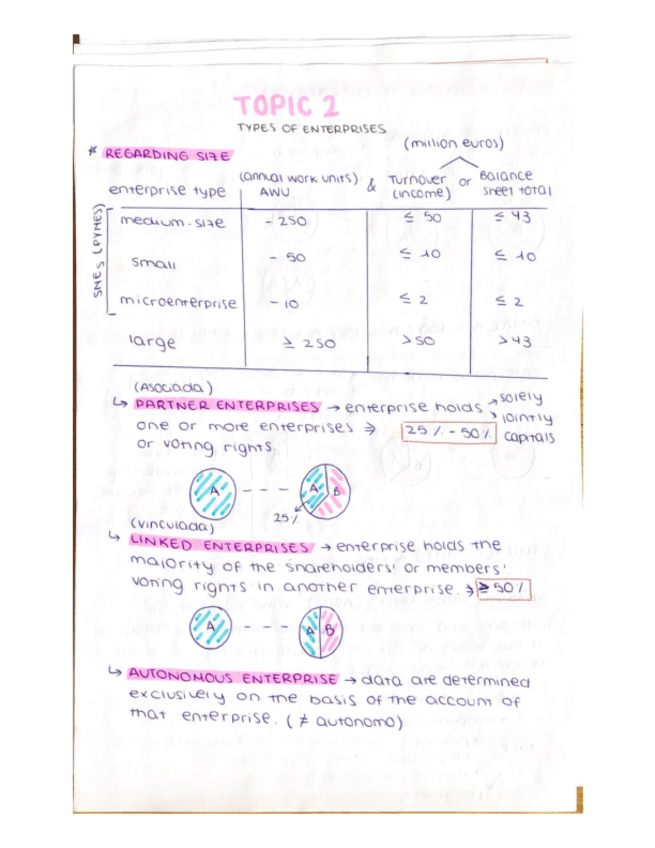 TOPIC 2
TYPES OF ENTERPRISES
(million euros)
* REGARDING SIZE
enterprise type (annual work units) AWU & Turnover (income) or Balance sheet total
SMES (PYMES)
medium-size - 250 ≤ 50 ≤ 43
small - 50 ≤ 10 ≤ 10
microenterprise - 10 ≤ 2 ≤ 2
large ≥ 250 >50 >43
(Asociada)
↳ PARTNER ENTERPRISES → enterprise holds → solely
→ jointly
one or more enterprises ⇒ 25% - 50% capitals
or voting rights.
A - - - A B
25%
(vinculada)
↳ LINKED ENTERPRISES → enterprise holds the
majority of the shareholders' or members'
voting rights in another enterprise. ⇒ ≥ 50%
A - - - A B
↳ AUTONOMOUS ENTERPRISE → data are determined
exclusively on the basis of the account of
that enterprise. (≠ autonomo)